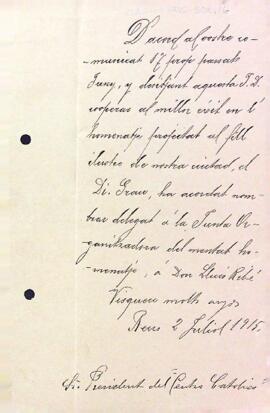 D'acord al vostre co-
municat 17 prop passats
Juny, y desitjant aquesta J. D.
cooperar al millor èxit en l'
homenatje projectat al fill
ilustre de nostra ciutat, el
Dr. Grau, ha acordat nom-
brar delegat á la Junta Or-
ganitzadora del mentat ho-
menatje, á Don Lluis
Visqueu molts anys
Reus 2 Juliol 1915.
Sr. President del "Centro Católico"